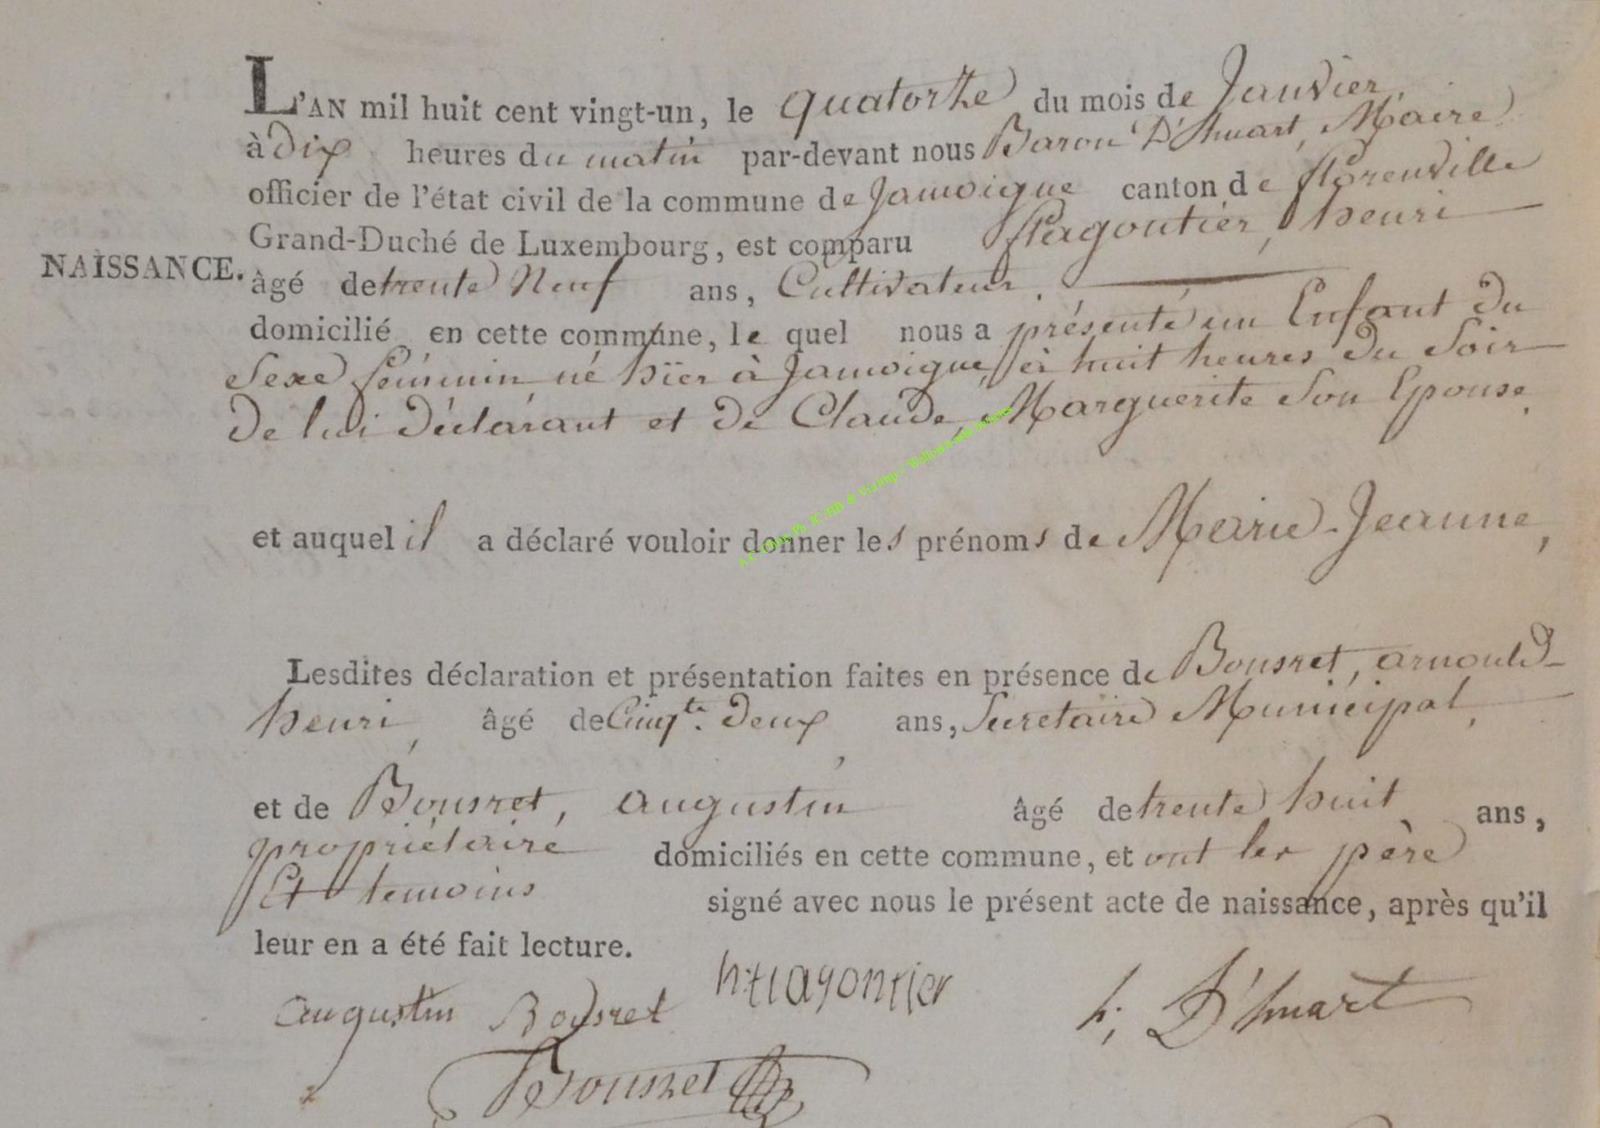 L'AN mil huit cent vingt-un, le quatorze du mois de Janvier,
à dix heures du matin par-devant nous Baron D'huart, Maire
officier de l'état civil de la commune de Jamoigne canton de florenville
Grand-Duché de Luxembourg, est comparu henri
NAISSANCE. âgé de trente Neuf ans, Cultivateur.
domicilié en cette commune, le quel nous a présenté un Enfant du
Sexe féminin né hïer à Jamoigne, à huit heures du Soir
De lui déclarant et de Claude, Marguerite Son Epouse,
et auquel il a déclaré vouloir donner les prénoms de Marie-Jeanne,
Lesdites déclaration et présentation faites en présence de Bousret, arnould
henri, âgé de Cinqte. deux ans, Secretaire Municipal,
et de Bousret, augustin âgé de trente huit ans,
propriétaire domiciliés en cette commune, et ont les père
Et temoins signé avec nous le présent acte de naissance, après qu'il
leur en a été fait lecture.
augustin Bousret h. D'huart
Bousret